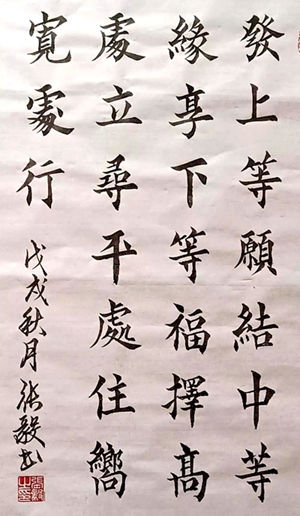 發上等願結中等
緣享下等福擇高
處立尋平處住嚮
寬處行
戊戌秋月張毅書